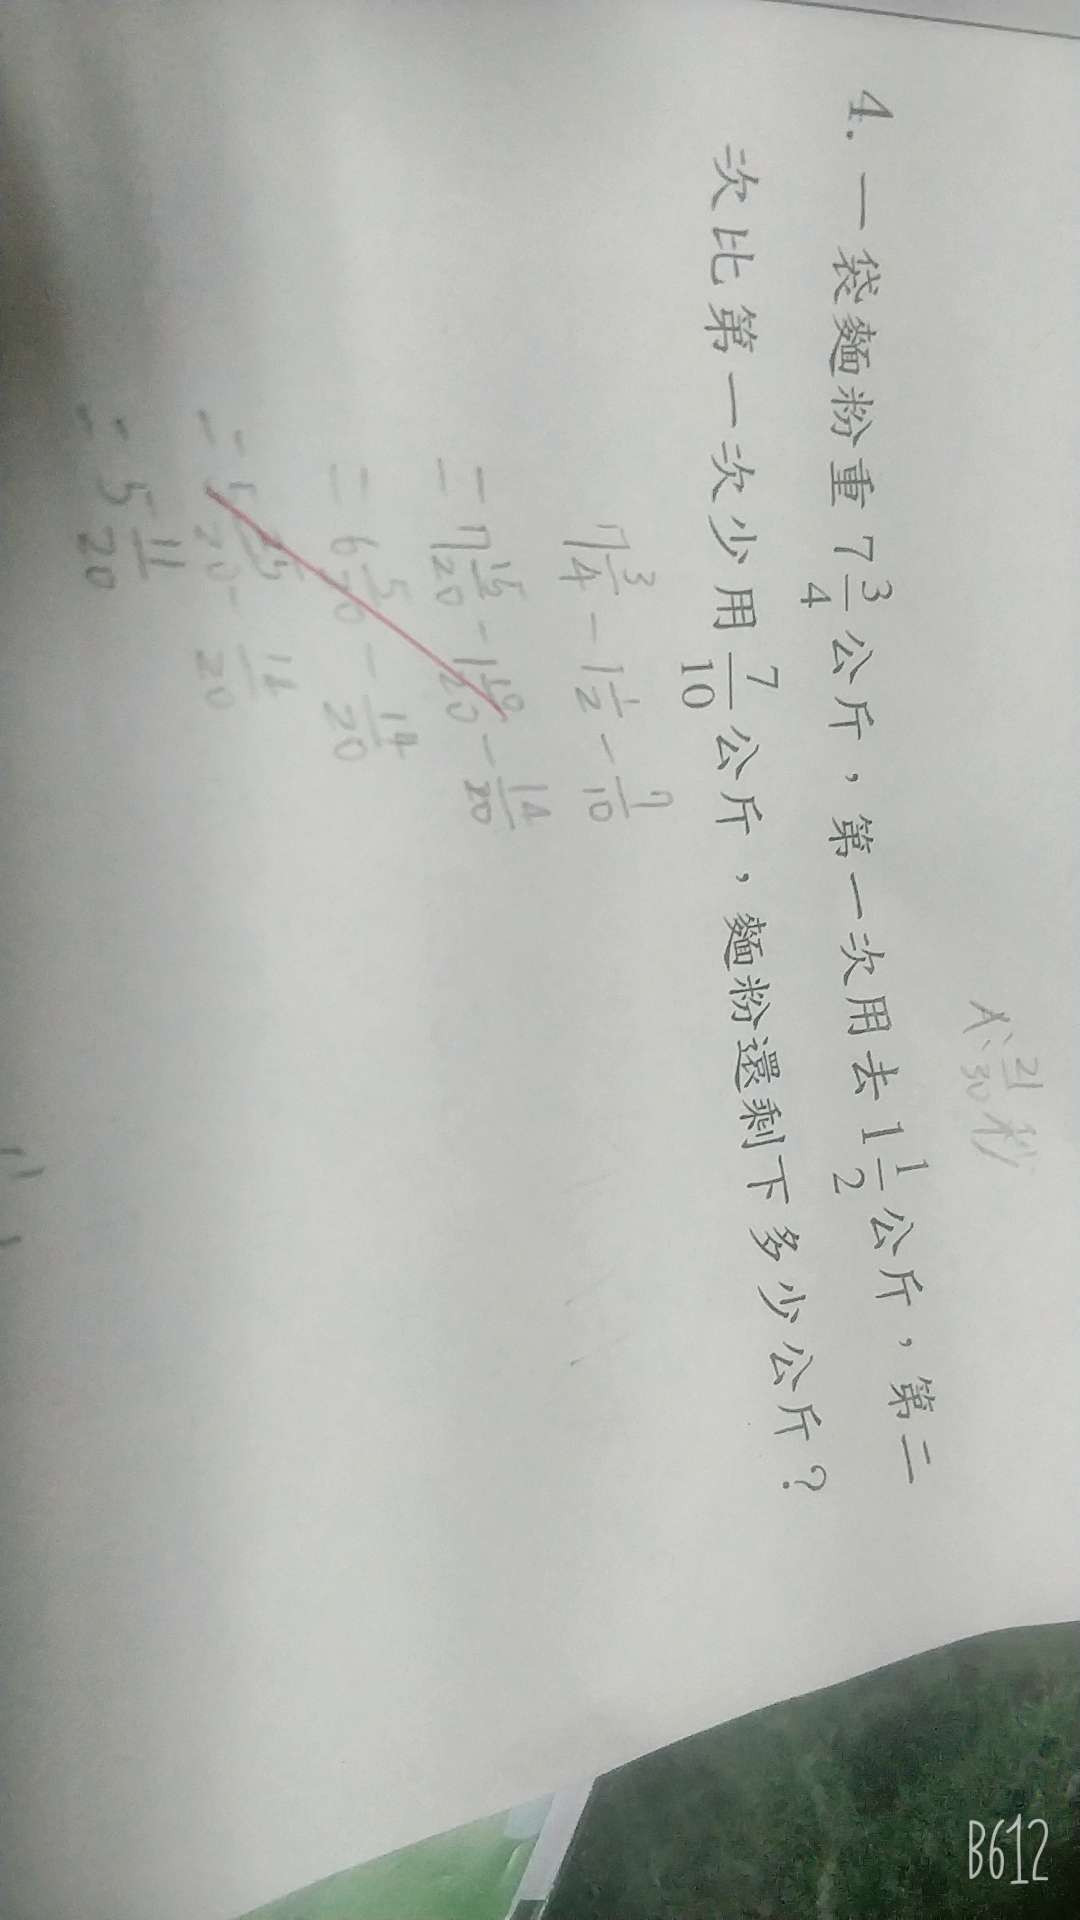 A: 21/30 秒
4. 一袋麵粉重 7 3/4 公斤，第一次用去 1 1/2 公斤，第二
次比第一次少用 7/10 公斤，麵粉還剩下多少公斤？
7 3/4 - 1 1/2 - 7/10
= 7 15/20 - 1 10/20 - 14/20
= 6 5/20 - 14/20
= 5 25/20 - 14/20
= 5 11/20
B612